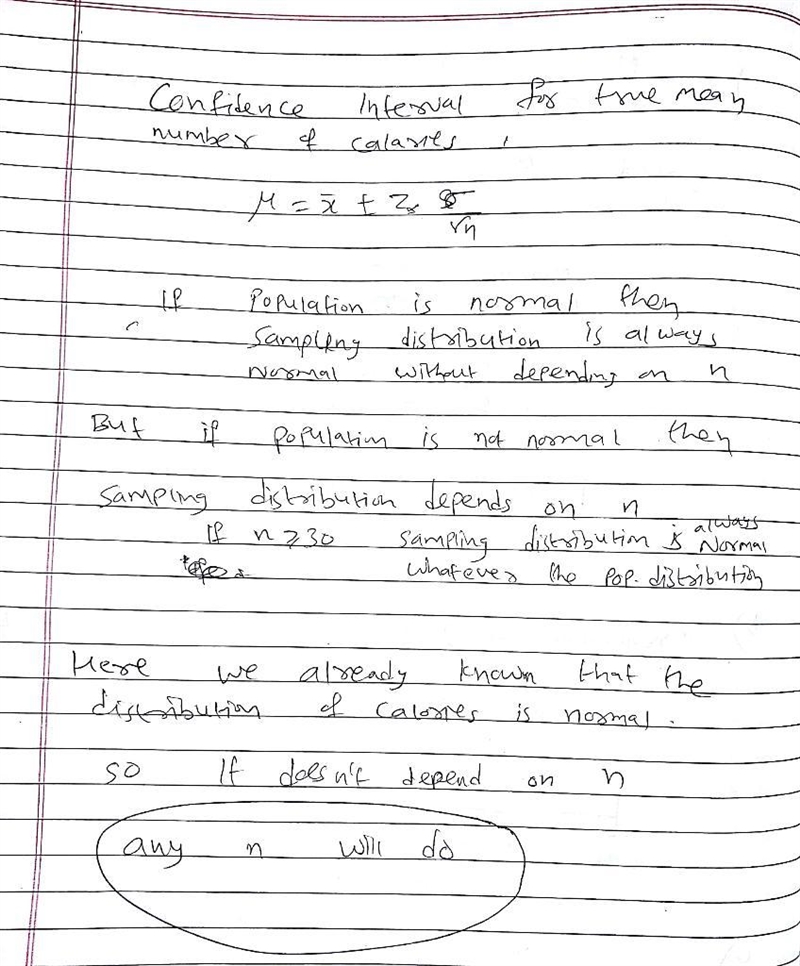 Confidence Interval for true mean
number of calaries ,
μ = x̄ ± Z σ
√n
If Population is normal then
Sampling distribution is always
Normal without depending on n
But if population is not normal then
Sampling distribution depends on n
If n ≥ 30 sampling distribution is always Normal
whatever the pop. distribution
Here we already known that the
distribution of calories is normal.
so It doesn't depend on n
any n will do